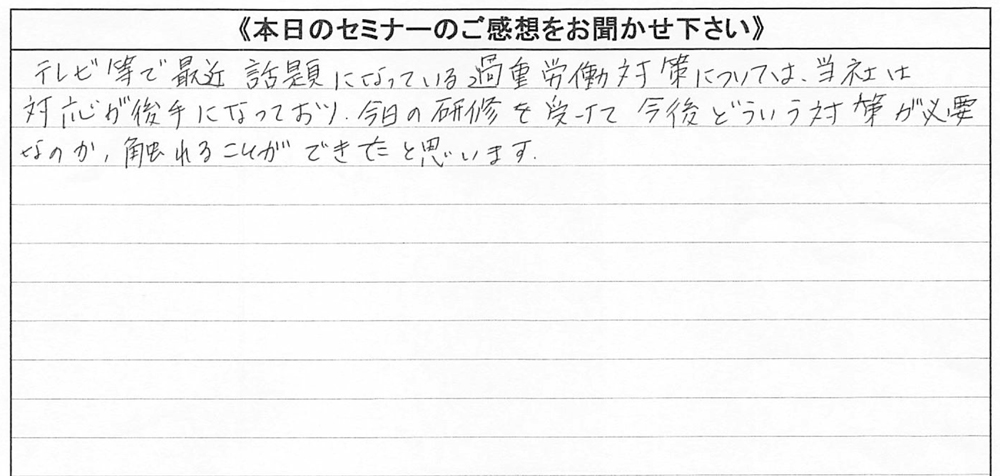 《本日のセミナーのご感想をお聞かせ下さい》
テレビ等で最近話題になっている過重労働対策については、当社は
対応が後手になっており、今日の研修を受けて今後どういう対策が必要
なのか、触れることができたと思います。